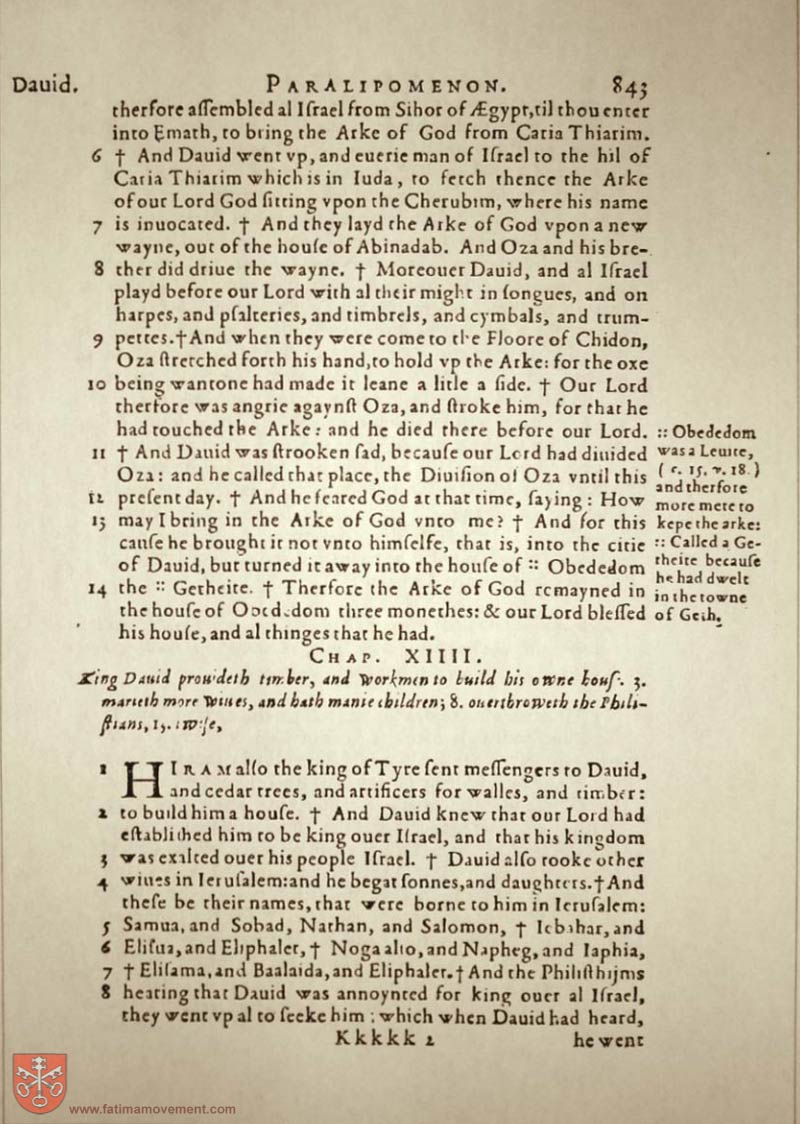 Dauid. PARALIPOMENON. 843
therfore aſſembled al Iſrael from Sihor of Ægypt, til thou enter
into Emath, to bring the Arke of God from Caria Thiarim.
6 † And Dauid went vp, and euerie man of Iſrael to the hil of
Caria Thiarim which is in Iuda, to fetch thence the Arke
of our Lord God ſitting vpon the Cherubim, where his name
7 is inuocated. † And they layd the Arke of God vpon a new
wayne, out of the houſe of Abinadab. And Oza and his bre-
8 ther did driue the wayne. † Moreouer Dauid, and al Iſrael
playd before our Lord with al their might in ſongues, and on
harpes, and pſalteries, and timbrels, and cymbals, and trum-
9 pettes. † And when they were come to the Floore of Chidon,
Oza ſtretched forth his hand, to hold vp the Arke: for the oxe
10 being wantone had made it leane a litle a ſide. † Our Lord
therfore was angrie agaynſt Oza, and ſtroke him, for that he
had touched the Arke: and he died there before our Lord.
11 † And Dauid was ſtrooken ſad, becauſe our Lord had diuided
Oza: and he called that place, the Diuiſion of Oza vntil this
12 preſent day. † And he feared God at that time, ſaying: How
13 may I bring in the Arke of God vnto me? † And for this
cauſe he brought it not vnto himſelfe, that is, into the citie
of Dauid, but turned it away into the houſe of :: Obededom
14 the :: Getheite. † Therfore the Arke of God remayned in
the houſe of Obededom three monethes: & our Lord bleſſed
his houſe, and al thinges that he had.
:: Obededom
was a Leuite,
( c. 15. v. 18. )
and therfore
more mete to
kepe the arke:
:: Called a Ge-
theite becauſe
he had dwelt
in the towne
of Geth.
CHAP. XIIII.
King Dauid prouideth timber, and workmen to build his owne houſe. 3.
marieth more wiues, and hath manie children; 8. ouerthroweth the Phili-
ſtians, 13. twiſe,
1 HIRAM alſo the king of Tyre ſent meſſengers to Dauid,
and cedar trees, and artificers for walles, and timber:
2 to build him a houſe. † And Dauid knew that our Lord had
eſtabliſhed him to be king ouer Iſrael, and that his kingdom
3 was exalted ouer his people Iſrael. † Dauid alſo tooke other
4 wiues in Ieruſalem: and he begat ſonnes, and daughters. † And
theſe be their names, that were borne to him in Ieruſalem:
5 Samua, and Sobad, Nathan, and Salomon, † Iebahar, and
6 Eliſua, and Eliphalet, † Noga alſo, and Napheg, and Iaphia,
7 † Eliſama, and Baalaida, and Eliphalet. † And the Philiſthijms
8 hearing that Dauid was annoynted for king ouer al Iſrael,
they went vp al to ſeeke him: which when Dauid had heard,
Kkkkk 2 he went
www.fatimamovement.com